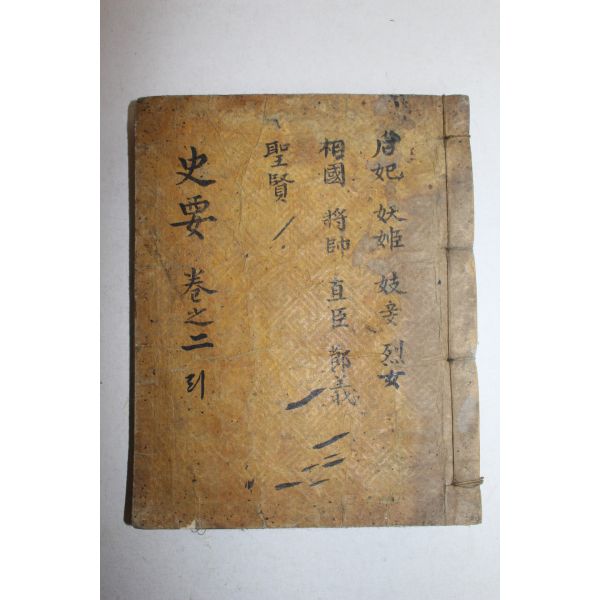 后妃 妖姬 妓妾 烈女
相國 將帥 直臣 節義
聖賢
史要 卷之二